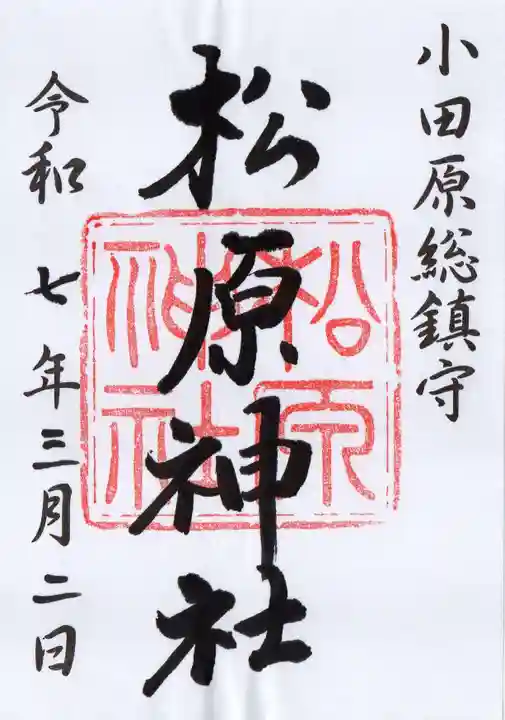 小田原総鎮守
松原神社
松原
神社
令和 七年三月二日